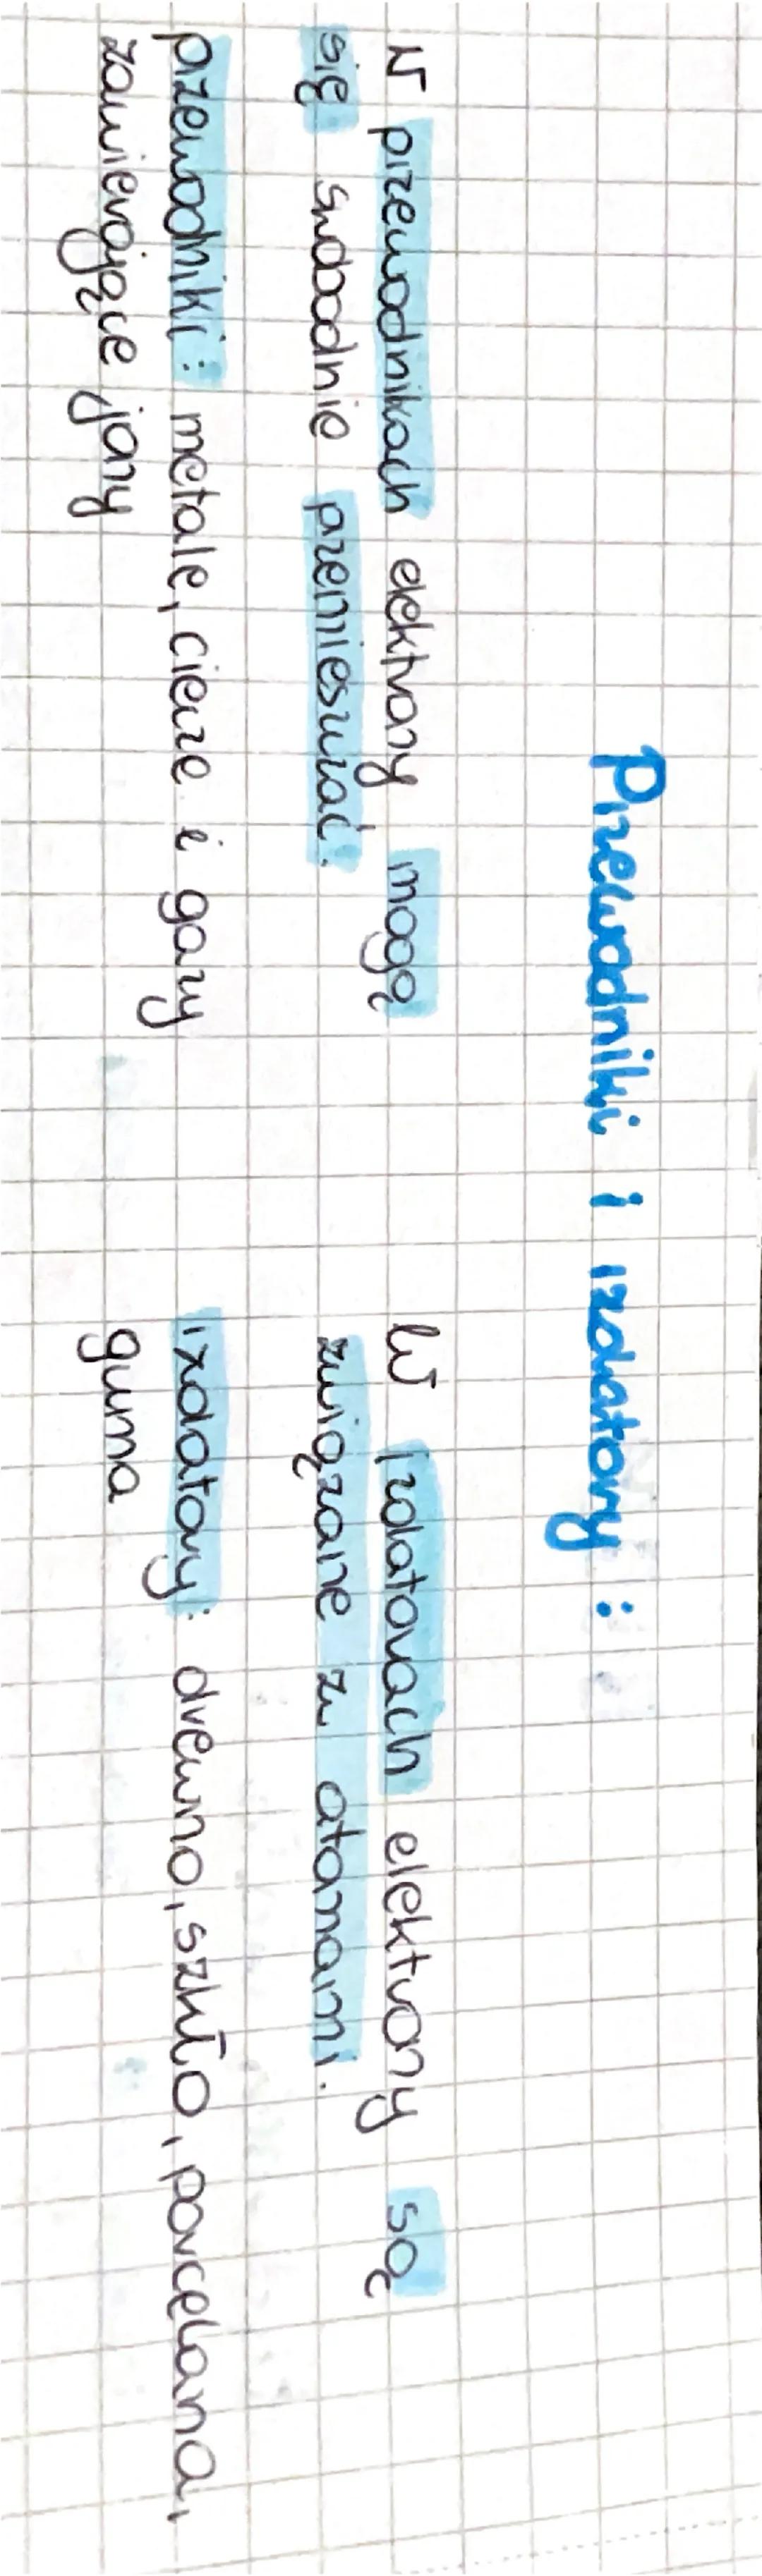 Przewodniki i izolatory:
W przewodnikach elektrony mogą
się swobodnie przemieszczać.
przewodniki: metale, ciecze i gazy
zawierające jony
W izolatorach elektrony są
związane z atomami.
izolatory: drewno, szkło, porcelana,
guma